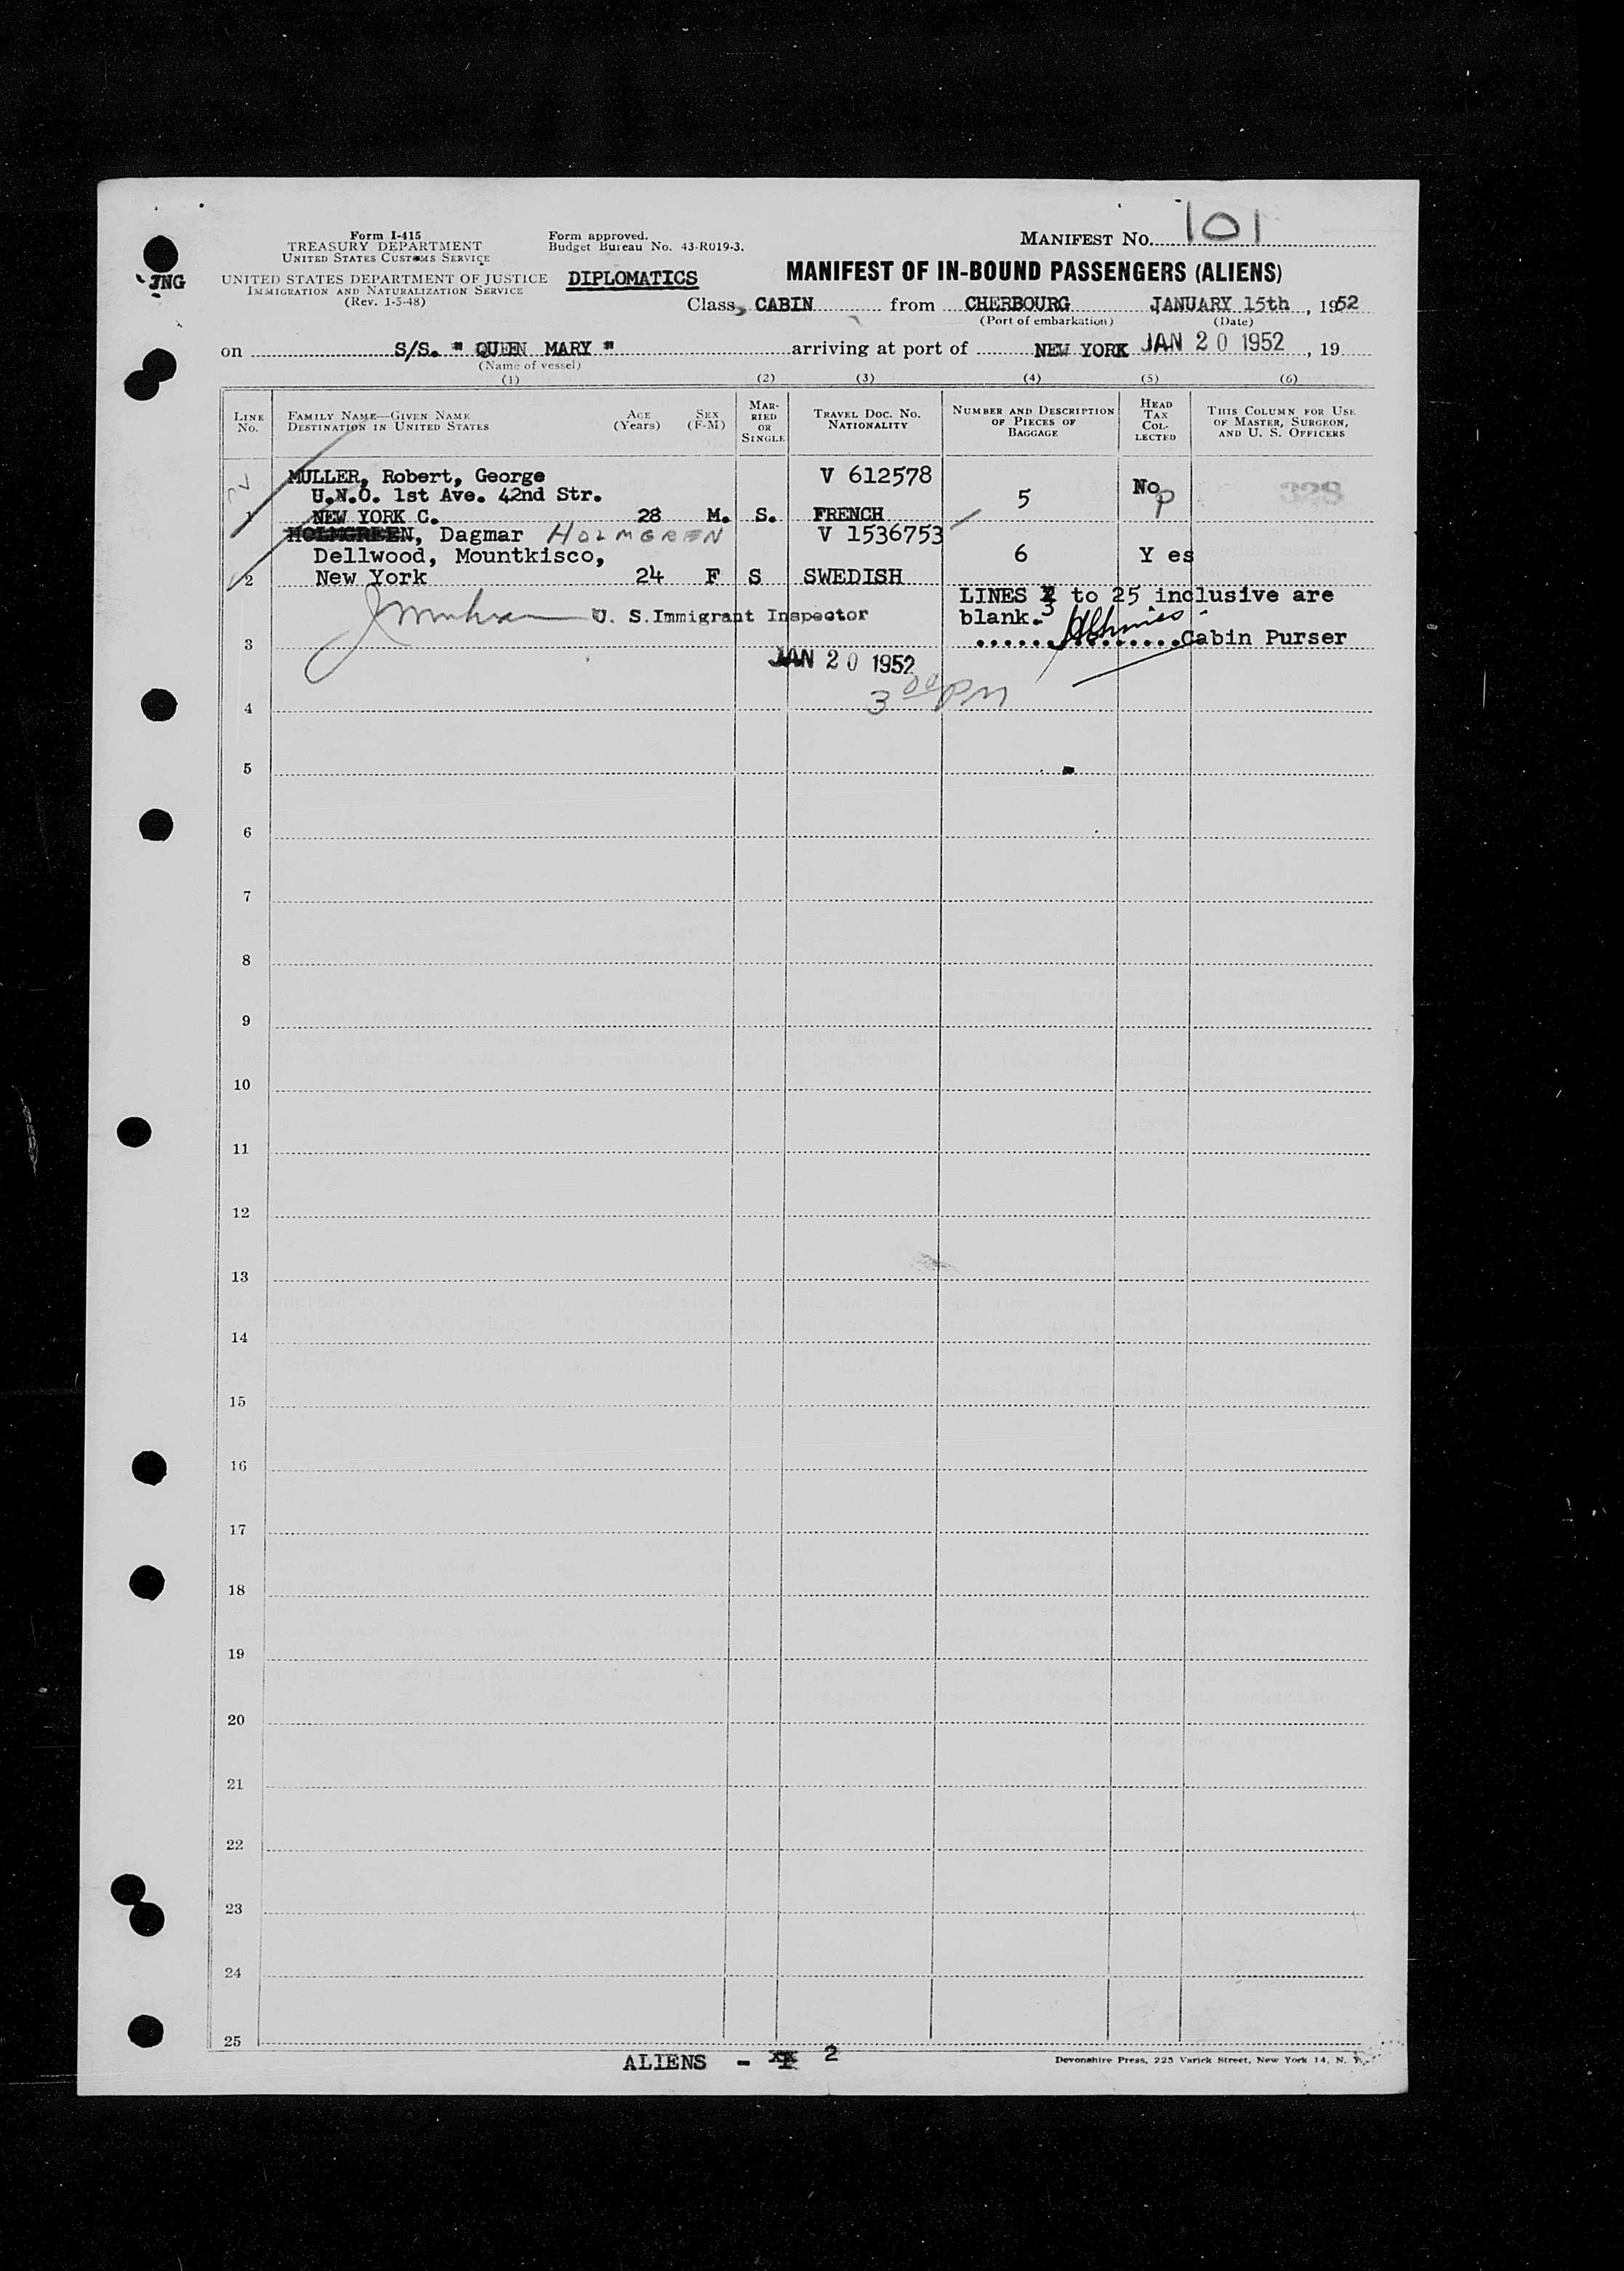 Form I-415
TREASURY DEPARTMENT
UNITED STATES CUSTOMS SERVICE
UNITED STATES DEPARTMENT OF JUSTICE
IMMIGRATION AND NATURALIZATION SERVICE
(Rev. 1-5-48)
JNG
Form approved.
Budget Bureau No. 43-R019-3.
DIPLOMATICS
MANIFEST NO. 101
MANIFEST OF IN-BOUND PASSENGERS (ALIENS)
Class CABIN from CHERBOURG JANUARY 15th, 1952
(Port of embarkation) (Date)
on S/S. " QUEEN MARY " arriving at port of NEW YORK JAN 20 1952, 19
(Name of vessel)
(1) (2) (3) (4) (5) (6)
LINE NO. FAMILY NAME—GIVEN NAME DESTINATION IN UNITED STATES AGE (Years) SEX (F-M) MARRIED OR SINGLE TRAVEL DOC. NO. NATIONALITY NUMBER AND DESCRIPTION OF PIECES OF BAGGAGE HEAD TAX COLLECTED THIS COLUMN FOR USE OF MASTER, SURGEON, AND U. S. OFFICERS
MULLER, Robert, George V 612578
U.N.O. 1st Ave. 42nd Str. 5 No P 328
1 NEW YORK C. 28 M. S. FRENCH
HOLMGREEN, Dagmar HOLMGREN V 1536753
Dellwood, Mountkisco, 6 Y es
2 New York 24 F S SWEDISH
LINES 3 to 25 inclusive are
blank.
U. S. Immigrant Inspector
Cabin Purser
3
JAN 20 1952
3 00 PM
4
5
6
7
8
9
10
11
12
13
14
15
16
17
18
19
20
21
22
23
24
25
ALIENS - 2
Devonshire Press, 225 Varick Street, New York 14, N. Y.